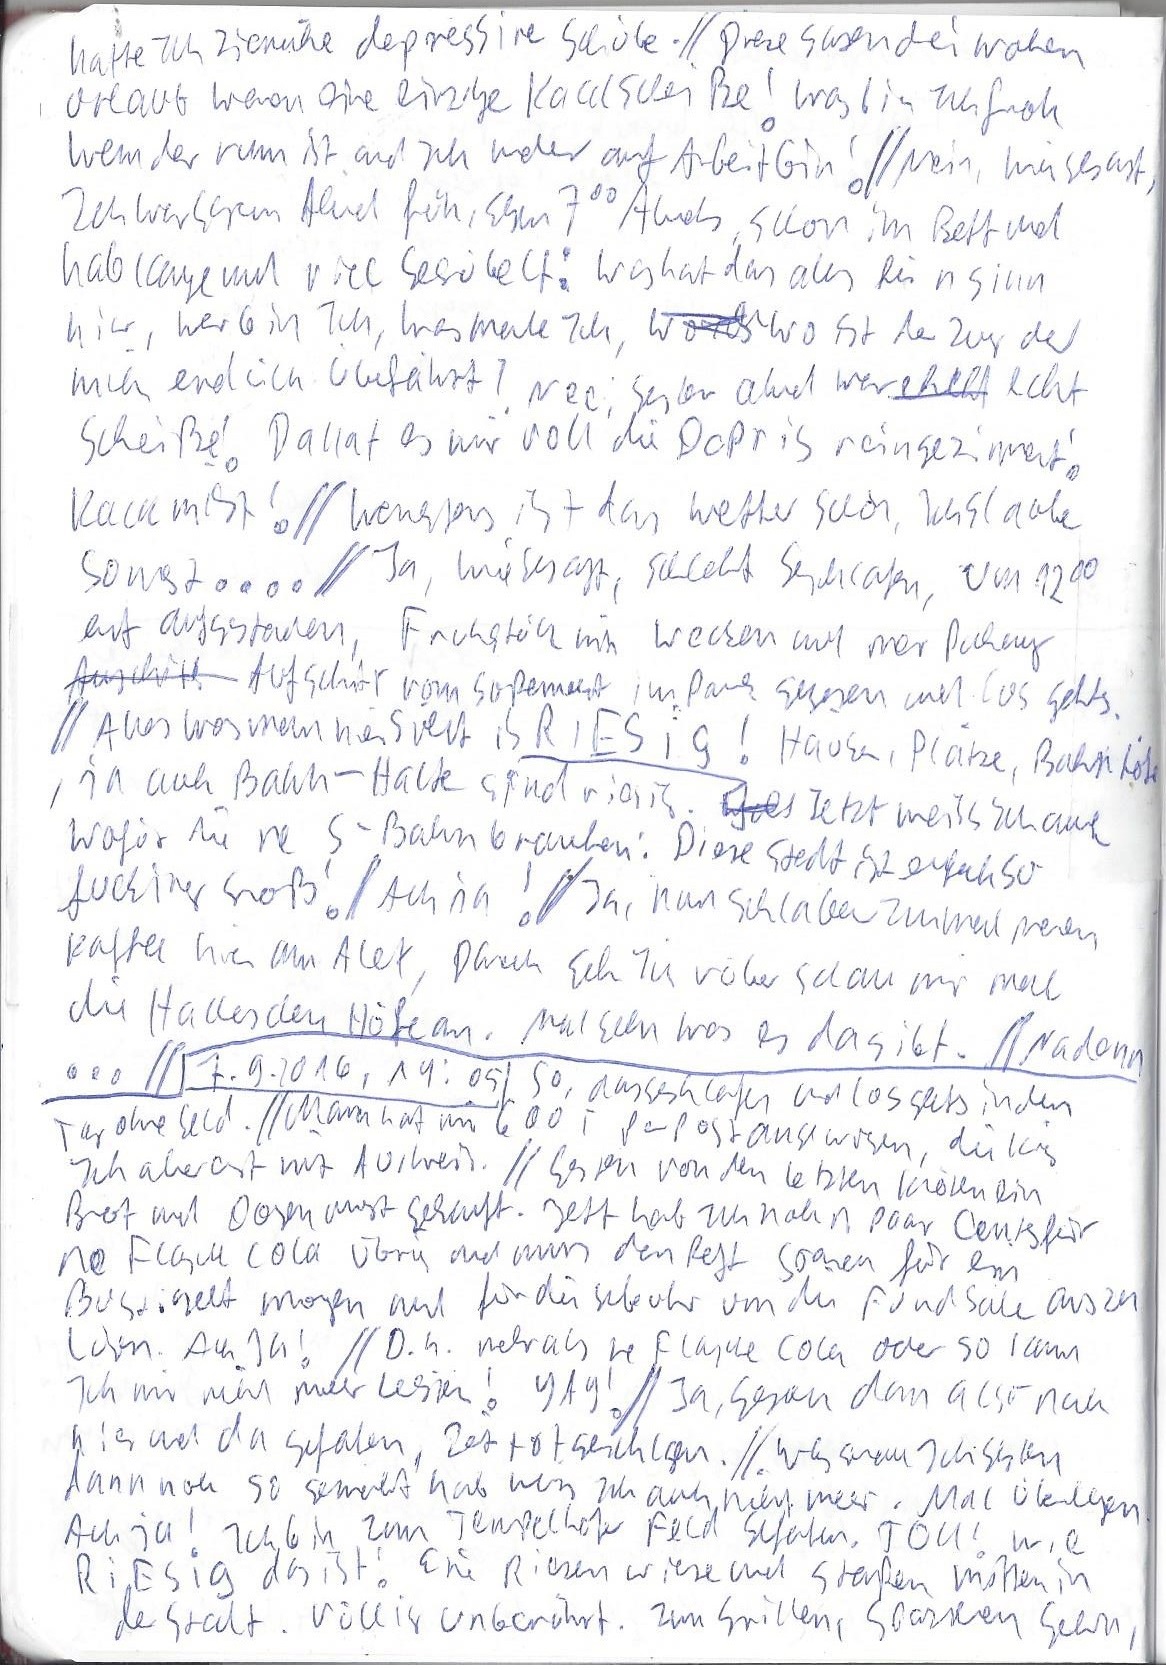 hatte Ich ziemliche depressive Schübe. // Diese ganzen drei wochen
Urlaub waren eine einzige Kackscheiße! was bin Ich froh
wenn der rum ist und Ich wieder auf Arbeit bin! // Nein, wie gesagt,
Ich war gestern Abend früh, gegen 7⁰⁰ Abends, schon im Bett und
hab lange und viel gegrübelt: was hat das alles für n sinn
hier, wer bin Ich, was mache Ich, wo ist der Zug der
mich endlich überfährt? Nee, gestern abend war echt
scheiße! Da hat es mir voll die Depris reingezimmert!
Kackmist! // wenigstens ist das wetter schön, Ich glaube
sonst .... // Ja, wie gesagt, schlecht geschlafen, um 12⁰⁰
erst aufgestanden, Frühstück mit wecken und ner Packung
Aufschnitt vom Supermarkt im Park gegessen und los gehts.
// Alles was man hier sieht is RIESig! Häuser, Plätze, Bahnhöfe
, ja auch Bahn-Halte sind riesig. Jetzt weiß Ich auch
wofür die ne S-Bahn brauchen: Diese Stadt ist einfach so
fucking groß! // Ach ja! // Ja, nun schlaber Ich mal meinen
Kaffee hier am Alex, Danach geh Ich rüber schau mir mal
die Hackeschen Höfe an. Mal sehn was es da gibt. // Na dann
... // 7.9.2016, 19:05/ So, ausgeschlafen und los gehts in den
Tag ohne Geld. // Mama hat mir 600 per Post angewiesen, die krieg
Ich aber erst mit Ausweis. // Gestern von den letzten kröten ein
Brot und Dosenwurst gekauft. Jetzt hab Ich noch n paar Cents für
ne Flasche Cola übrig und muss den Rest sparen für ein
Busticket morgen und für die gebühr von der Fundsache auszu
lösen. Ach Ja! // D.h. mehr als ne Flasche Cola oder so kann
Ich mir nicht mehr leisten! YAY! // Ja, gestern dann also noch
hier und da gefahren, Zeit totgeschlagen. // was genau Ich gestern
dann noch so gemacht hab weiss Ich auch nicht mehr. Mal überlegen.
Ach ja! Ich bin zum Tempelhofer Feld gefahren. TOLL! wie
RiESig das ist! Eine Riesen wiese und straßen mitten in
der Stadt. Völlig unberührt. Zum Grillen, spazieren gehen,